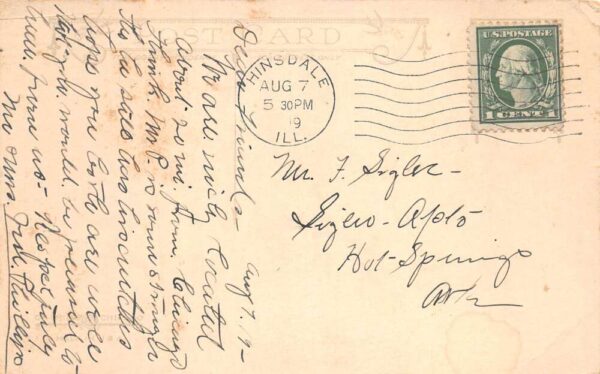 POST CARD
HINSDALE
AUG 7
5 30PM
9
ILL.
U.S. POSTAGE
1 CENT 1
Aug 7. 19-
Dear Friends-
We are nicely located
about 20 mi. from Chicago
I think. Mr P. is some stronger
tho he still has
hope you both are well
Ralph would be pleased to
hear from us- Respectfully
Mr. F. Sigler-
Sigler- Apts
Hot-Springs
Ark